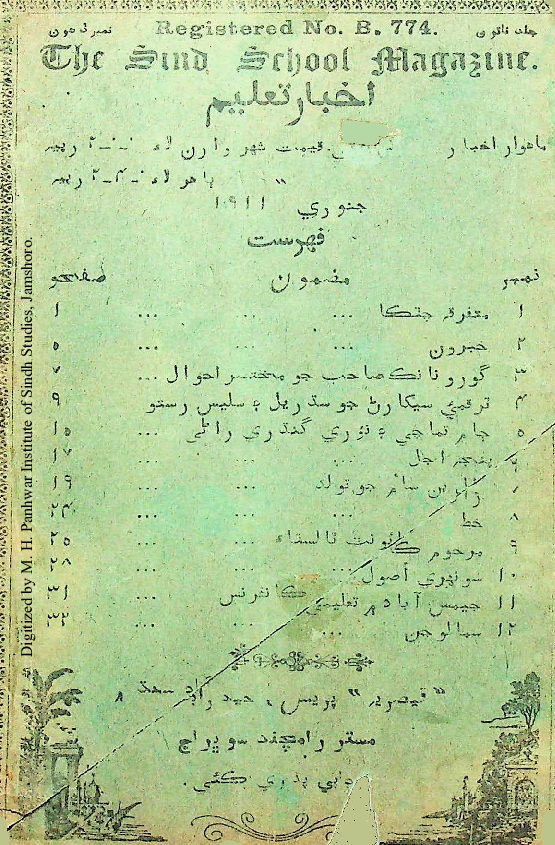 نمبر ٽيون Registered No. B. 774. جلد نائون
The Sind School Magazine.
اخبار تعليم
ماهوار اخبار قيمت شهر وارن لاءِ ٢-٠-٠ رپيہ
" " ٻاهر لاءِ ٢-٤-٠ رپيہ
جنوري ١٩١١
فهرست
نمبر مضمون صفحو
١ متفرقہ چٽڪا ... ... ١
٢ خبرون ... ... ... ٥
٣ گورو نانڪ صاحب جو مختصر احوال ... ٧
٤ ترقيءَ سيکارڻ جو سڌريل ۽ سليس رستو ٩
٥ ڄام تماچي ۽ نوري گندري راڻي ... ١٥
٦ پنجه اجل ... ... ١٧
٧ زال بن سام جو تولد ... ... ١٩
٨ خط ... ... ... ٢٤
٩ مرحوم ڪائونٽ ٽالسٽاءِ ... ٢٥
١٠ سونهري اصول ... ... ... ٢٨
١١ جيمس آباد ۾ تعليمي ڪانفرنس ... ٣١
١٢ سمالوچن ... ... ... ٣٢
"قيصريہ" پريس، حيدرآباد سنڌ ۾
مستر رامچند سوڀراج
ڇاپي پڌري ڪئي.
Digitized by M. H. Panhwar Institute of Sindh Studies, Jamshoro.